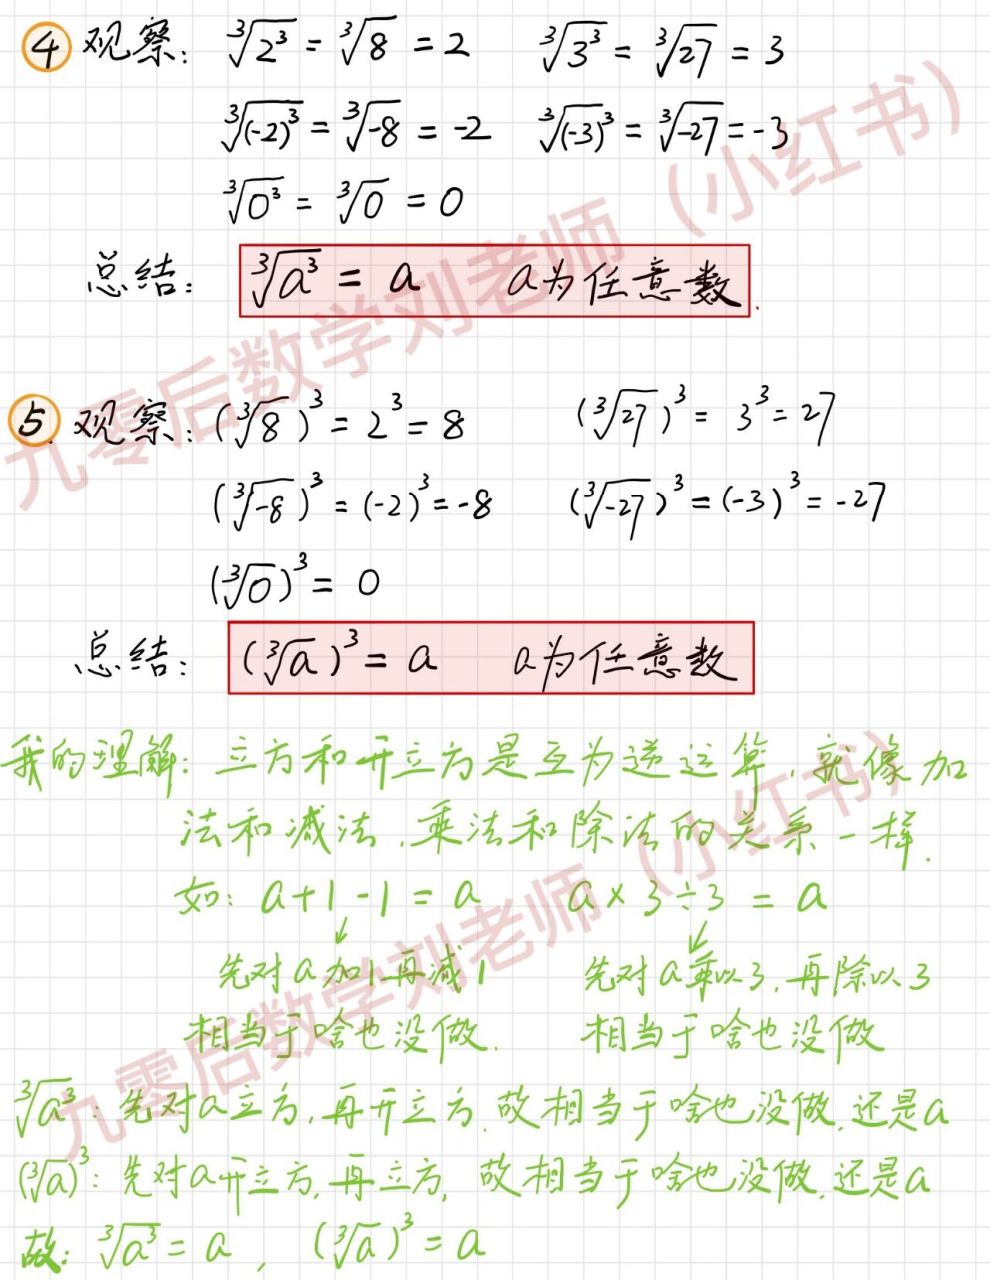 ④ 观察: ∛2³ = ∛8 = 2 ∛3³ = ∛27 = 3
∛(-2)³ = ∛-8 = -2 ∛(-3)³ = ∛-27 = -3
∛0³ = ∛0 = 0
总结: ∛a³ = a a为任意数.
⑤. 观察: (∛8)³ = 2³ = 8 (∛27)³ = 3³ = 27
(∛-8)³ = (-2)³ = -8 (∛-27)³ = (-3)³ = -27
(∛0)³ = 0
总结: (∛a)³ = a a为任意数
我的理解: 立方和开立方是互为逆运算, 就像加
法和减法, 乘法和除法的关系一样.
如: a+1-1 = a a×3÷3 = a
↓ ↓
先对a加1再减1 先对a乘以3, 再除以3
相当于啥也没做. 相当于啥也没做
∛a³: 先对a立方, 再开立方, 故相当于啥也没做, 还是a
(∛a)³: 先对a开立方, 再立方, 故相当于啥也没做, 还是a
故: ∛a³ = a , (∛a)³ = a
九零后数学刘老师（小红书）
九零后数学刘老师（小红书）